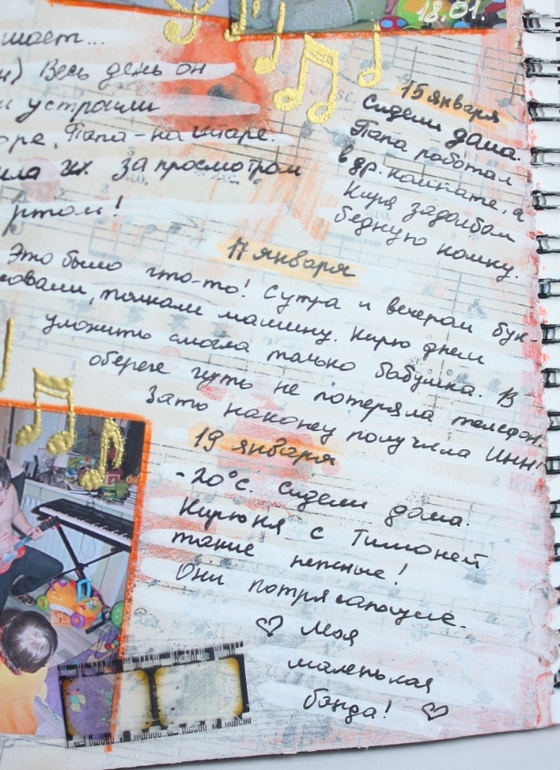 18.01.
шает...
н) Весь день он
и устроили
оре, Папа - на гитаре.
ила их за просмотром
ртом!
15 января
Сидели дома.
Папа работал
в др. комнате, а
Киря задолбал
бедную кошку.
17 января
Это было что-то! С утра и вечером бук-
совали, толкали машину. Кирю днем
уложить смогла только бабушка. В
обереге чуть не потеряла телефон.
Зато наконец получила ИНН
19 января
-20°С. Сидели дома.
Кирюня с Тимошей
такие нежные!
Они потрясающие.
♡ Моя
маленькая
банда! ♡